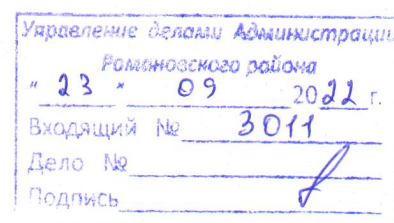 Управление делами Администрации
Романовского района
" 23 " 09 2022 г.
Входящий № 3011
Дело №
Подпись